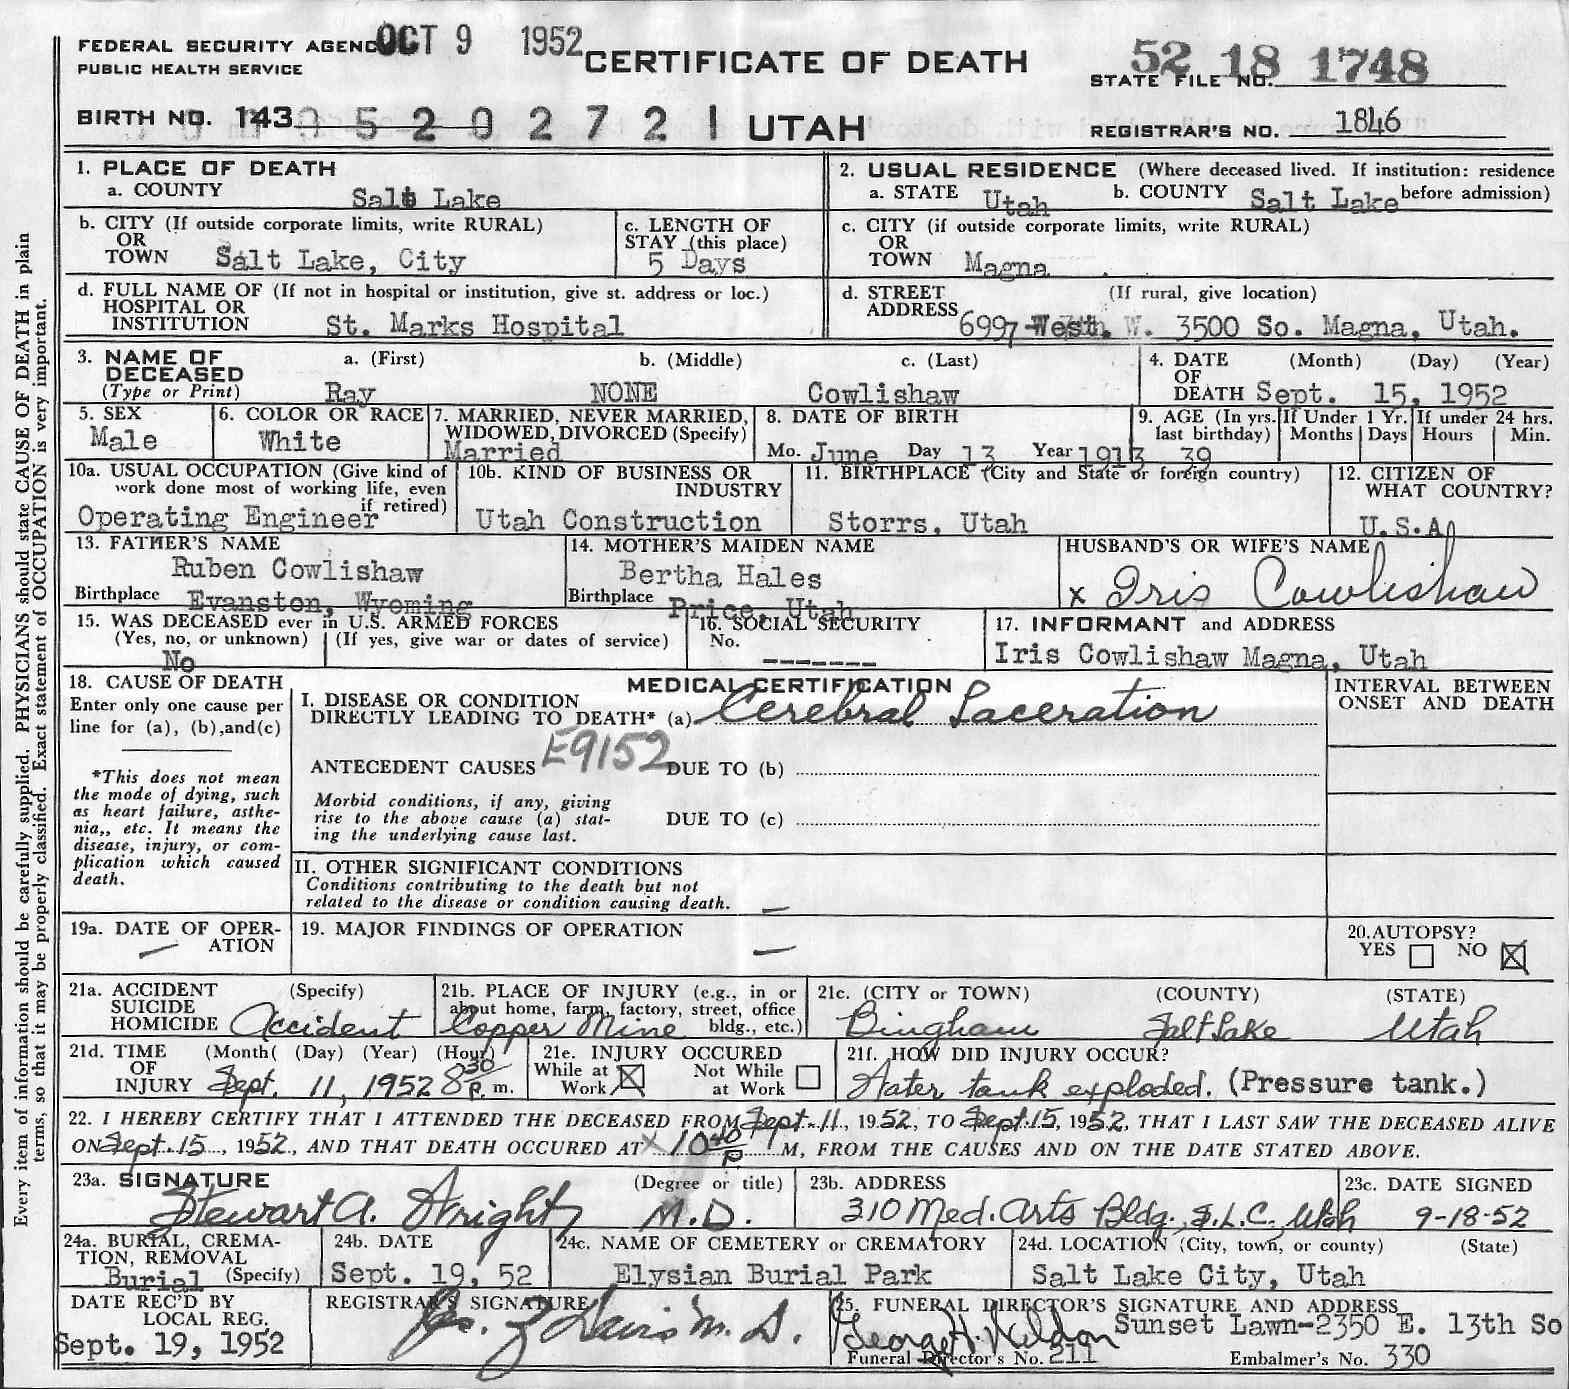 OCT 9 1952
FEDERAL SECURITY AGENC
PUBLIC HEALTH SERVICE
CERTIFICATE OF DEATH
52 18 1748
STATE FILE NO.
BIRTH NO. 143 0 5 2 0 2 7 2 1 UTAH
REGISTRAR'S NO. 1846
1. PLACE OF DEATH
a. COUNTY
Salt Lake
2. USUAL RESIDENCE (Where deceased lived. If institution: residence
a. STATE Utah b. COUNTY Salt Lake before admission)
b. CITY (If outside corporate limits, write RURAL)
OR
TOWN Salt Lake, City
c. LENGTH OF
STAY (this place)
5 Days
c. CITY (if outside corporate limits, write RURAL)
OR
TOWN Magna
d. FULL NAME OF (If not in hospital or institution, give st. address or loc.)
HOSPITAL OR
INSTITUTION St. Marks Hospital
d. STREET (If rural, give location)
ADDRESS 6997 W. 3500 So. Magna, Utah.
3. NAME OF a. (First) b. (Middle) c. (Last)
DECEASED
(Type or Print) Ray NONE Cowlishaw
4. DATE (Month) (Day) (Year)
OF
DEATH Sept. 15, 1952
5. SEX
Male
6. COLOR OR RACE
White
7. MARRIED, NEVER MARRIED,
WIDOWED, DIVORCED (Specify)
Married
8. DATE OF BIRTH
Mo. June Day 13 Year 1913
9. AGE (In yrs.
last birthday)
39
If Under 1 Yr.
Months Days
If under 24 hrs.
Hours Min.
10a. USUAL OCCUPATION (Give kind of
work done most of working life, even
if retired)
Operating Engineer
10b. KIND OF BUSINESS OR
INDUSTRY
Utah Construction
11. BIRTHPLACE (City and State or foreign country)
Storrs, Utah
12. CITIZEN OF
WHAT COUNTRY?
U.S.A
13. FATHER'S NAME
Ruben Cowlishaw
Birthplace Evanston, Wyoming
14. MOTHER'S MAIDEN NAME
Bertha Hales
Birthplace Price, Utah
HUSBAND'S OR WIFE'S NAME
x Iris Cowlishaw
15. WAS DECEASED ever in U.S. ARMED FORCES
(Yes, no, or unknown) (If yes, give war or dates of service)
No
16. SOCIAL SECURITY
No.
-------
17. INFORMANT and ADDRESS
Iris Cowlishaw Magna, Utah
18. CAUSE OF DEATH
Enter only one cause per
line for (a), (b),and(c)
*This does not mean
the mode of dying, such
as heart failure, asthe-
nia,, etc. It means the
disease, injury, or com-
plication which caused
death.
MEDICAL CERTIFICATION
I. DISEASE OR CONDITION
DIRECTLY LEADING TO DEATH* (a) Cerebral Laceration
E9152
ANTECEDENT CAUSES DUE TO (b)
Morbid conditions, if any, giving
rise to the above cause (a) stat-
ing the underlying cause last.
DUE TO (c)
II. OTHER SIGNIFICANT CONDITIONS
Conditions contributing to the death but not
related to the disease or condition causing death. —
INTERVAL BETWEEN
ONSET AND DEATH
19a. DATE OF OPER-
ATION
—
19. MAJOR FINDINGS OF OPERATION
—
20. AUTOPSY?
YES NO X
21a. ACCIDENT (Specify)
SUICIDE
HOMICIDE Accident
21b. PLACE OF INJURY (e.g., in or
about home, farm, factory, street, office
bldg., etc.)
Copper Mine
21c. (CITY or TOWN) (COUNTY) (STATE)
Bingham Salt Lake Utah
21d. TIME (Month( (Day) (Year) (Hour)
OF
INJURY Sept. 11, 1952 8 30 P. m.
21e. INJURY OCCURED
While at Not While
Work X at Work
21f. HOW DID INJURY OCCUR?
Water tank exploded. (Pressure tank.)
22. I HEREBY CERTIFY THAT I ATTENDED THE DECEASED FROM Sept. 11, 1952, TO Sept. 15, 1952, THAT I LAST SAW THE DECEASED ALIVE
ON Sept. 15, 1952, AND THAT DEATH OCCURED AT x 10 40 P M, FROM THE CAUSES AND ON THE DATE STATED ABOVE.
23a. SIGNATURE (Degree or title)
Stewart A. Wright M.D.
23b. ADDRESS
310 Med. Arts Bldg., S.L.C, Utah
23c. DATE SIGNED
9-18-52
24a. BURIAL, CREMA-
TION, REMOVAL
Burial (Specify)
24b. DATE
Sept. 19, 52
24c. NAME OF CEMETERY or CREMATORY
Elysian Burial Park
24d. LOCATION (City, town, or county) (State)
Salt Lake City, Utah
DATE REC'D BY
LOCAL REG.
Sept. 19, 1952
REGISTRAR'S SIGNATURE
M. D.
25. FUNERAL DIRECTOR'S SIGNATURE AND ADDRESS
George H. Sunset Lawn-2350 E. 13th So
Funeral Director's No. 211 Embalmer's No. 330
Every item of information should be carefully supplied. PHYSICIANS should state CAUSE OF DEATH in plain
terms, so that it may be properly classified. Exact statement of OCCUPATION is very important.